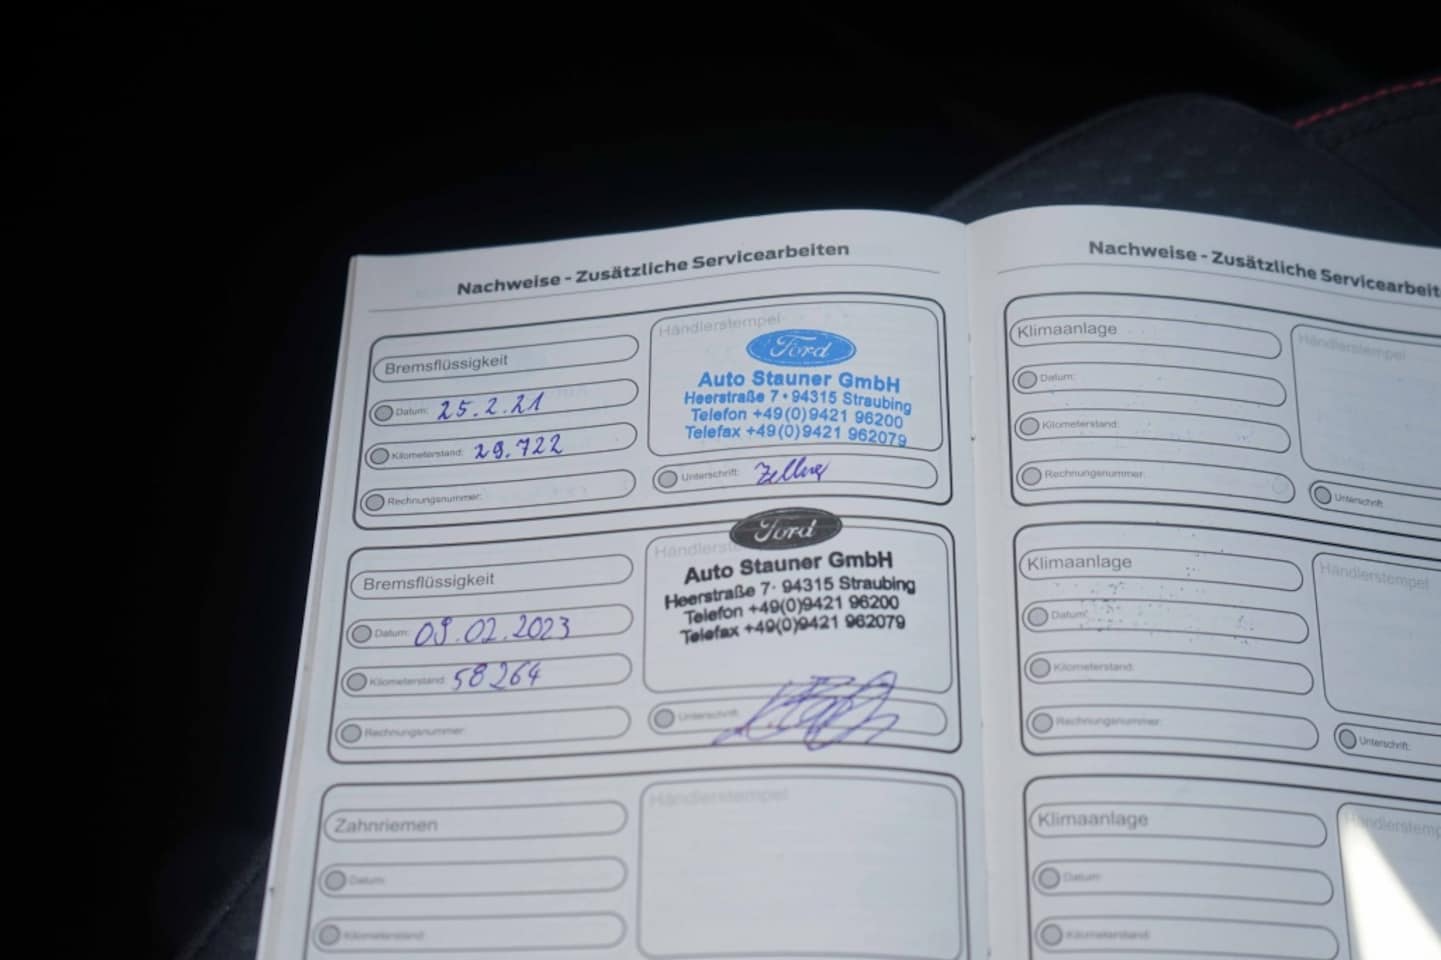 Nachweise - Zusätzliche Servicearbeiten
Bremsflüssigkeit
Datum: 25.2.21
Kilometerstand: 29.722
Rechnungsnummer:
Händlerstempel
Ford
Auto Stauner GmbH
Heerstraße 7 • 94315 Straubing
Telefon +49(0)9421 96200
Telefax +49(0)9421 962079
Unterschrift: Zellner
Bremsflüssigkeit
Datum: 09.02.2023
Kilometerstand: 58264
Rechnungsnummer:
Ford
Auto Stauner GmbH
Heerstraße 7 · 94315 Straubing
Telefon +49(0)9421 96200
Telefax +49(0)9421 962079
Unterschrift:
Zahnriemen
Datum:
Kilometerstand:
Händlerstempel
Nachweise - Zusätzliche Servicearbeit
Klimaanlage
Datum:
Kilometerstand:
Rechnungsnummer:
Händlerstempel
Unterschrift:
Klimaanlage
Datum:
Kilometerstand:
Rechnungsnummer:
Händlerstempel
Unterschrift:
Klimaanlage
Datum:
Kilometerstand: